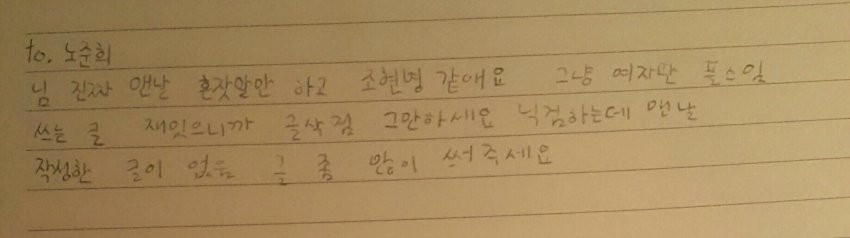 to. 노준희
님 진짜 맨날 혼잣말만 하고 조현병 같애요 그냥 여자판 플스일
쓰는 글 재밌으니까 글삭 점 그만하세요 닉검하는데 맨날
작성한 글이 없음 글 좀 많이 써주세요